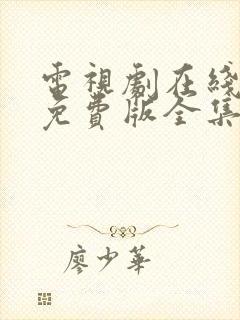 電視劇在綫
免費版全集
廖少華